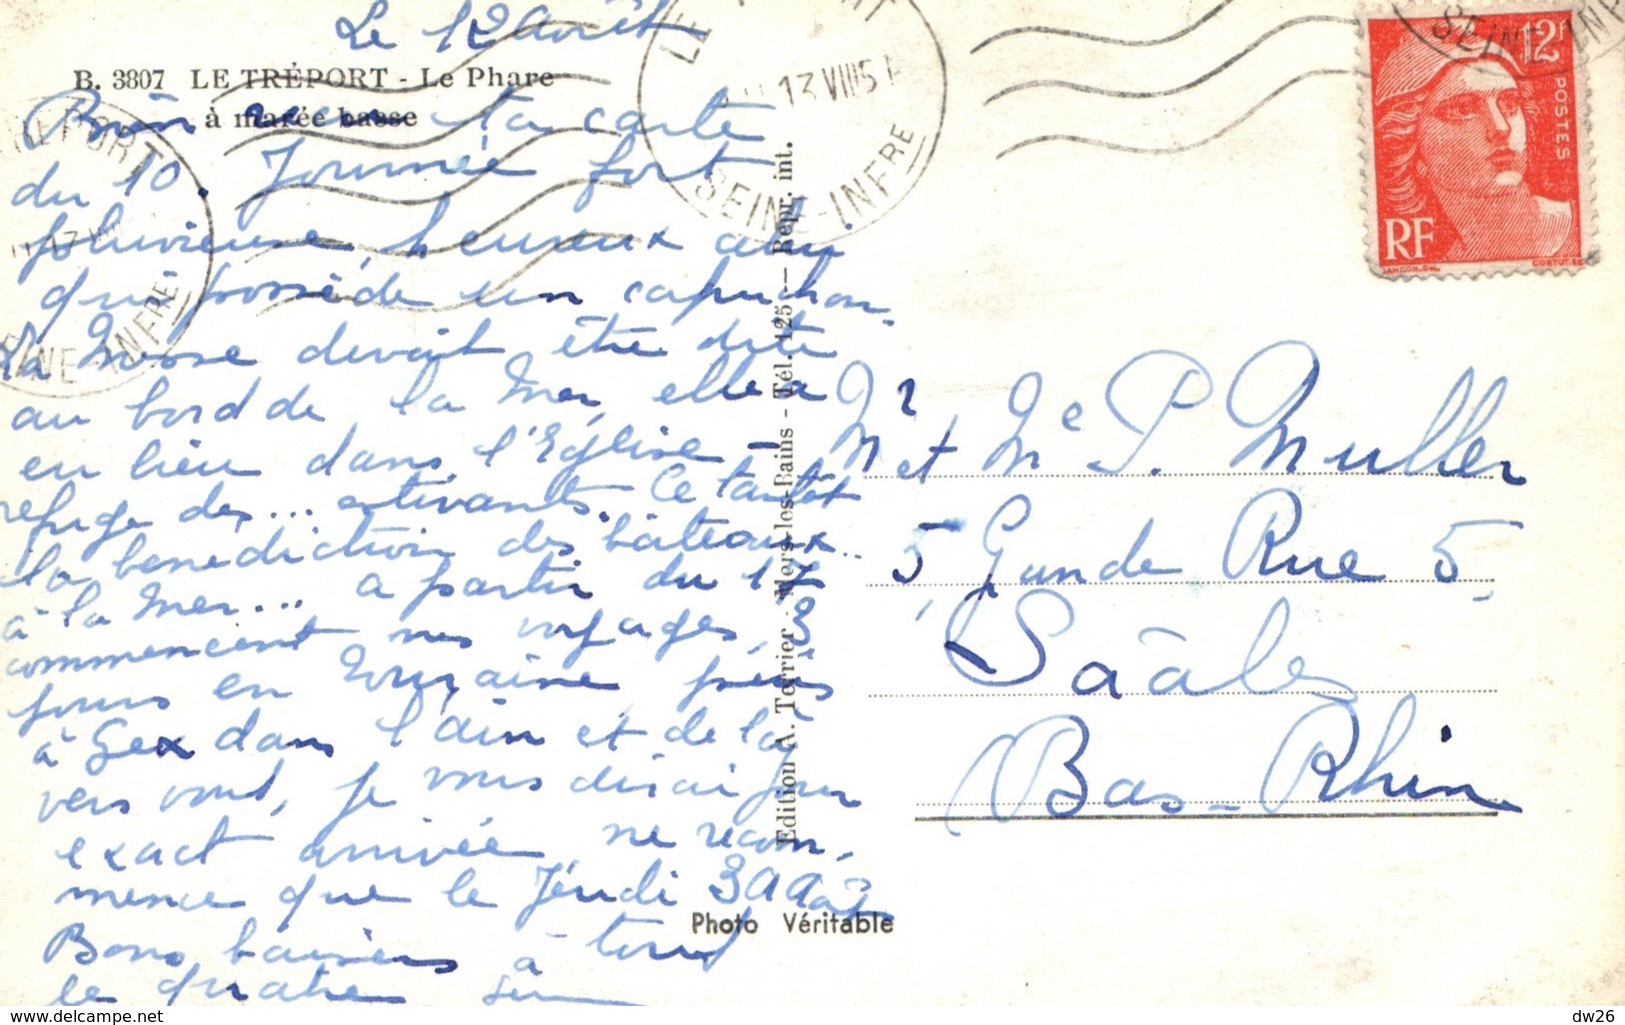 Le 12 Août
B. 3807 LE TRÉPORT - Le Phare
à marée basse
Bien reçu ta carte
du 10. Journée fort
pluvieuse, heureux celui
qui possède un capuchon.
La Messe devait être dite
au bord de la Mer, elle a
eu lieu dans l'Eglise -
refuge des... estivants. Ce tantôt
la bénédiction des bateaux...
à la Mer... a partir du 17
commencent nos voyages, 3
jours en Touraine, puis
à Gex dans l'Ain et de là
vers vous, je vous dirai jour
exact arrivée, ne recom-
mence que le Jeudi 30 Août
Bons baisers à tous
le quatre
Edition A. Terrier - Mers-les-Bains - Tél. 125 - Repr. int.
Photo Véritable
LE TRÉPORT
13 VIII 51
SEINE-INFRE
TRÉPORT
SEINE-INFRE
SEINE-INFRE
12F
POSTES
RF
GANDON.Del.
CORTOT.SC
Mr et Me P. Muller
5, Grande Rue 5,
Saâles
Bas-Rhin
https://www.delcampe.net
dw26